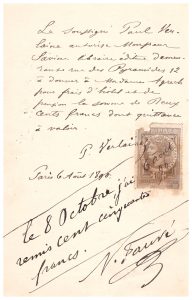 Le soussigné Paul Ver-
laine autorise Monsieur
Savine libraire éditeur demeu-
rant rue des Pyramides 12
à donner à Madame
pour frais d'hôtel et de
pension la somme de Deux
Cents francs dont quittance
à valoir
P. Verlaine
Paris 6 Août 1890.
le 8 Octobre j'ai
remis cent cinquante
francs.